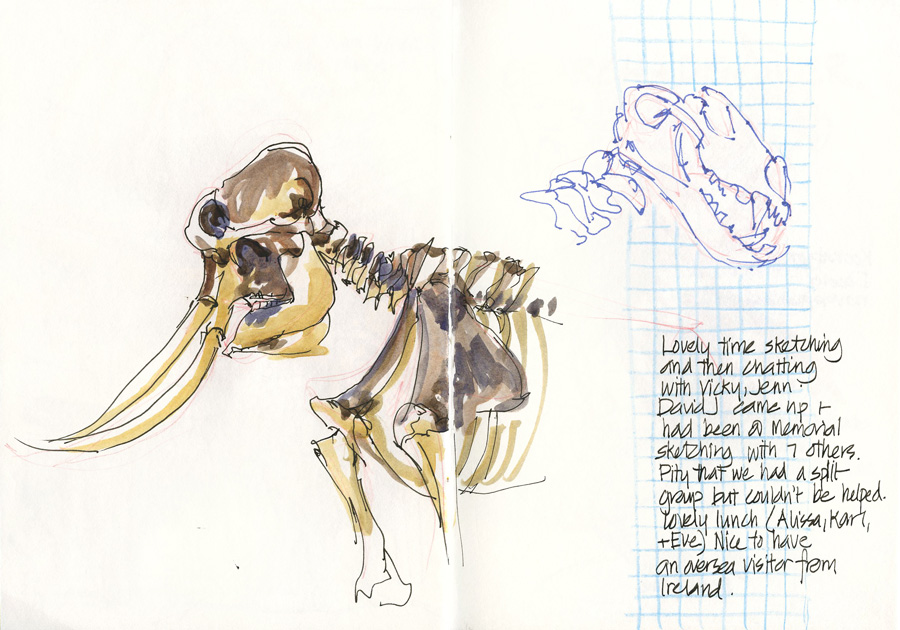 Lovely time sketching
and then chatting
with Vicky, Jenn.
David came up +
had been @ Memorial
sketching with 7 others.
Pity that we had a split
group but couldn't be helped.
Lovely lunch (Alissa, Karl,
+Eve) Nice to have
an oversea visitor from
Ireland.